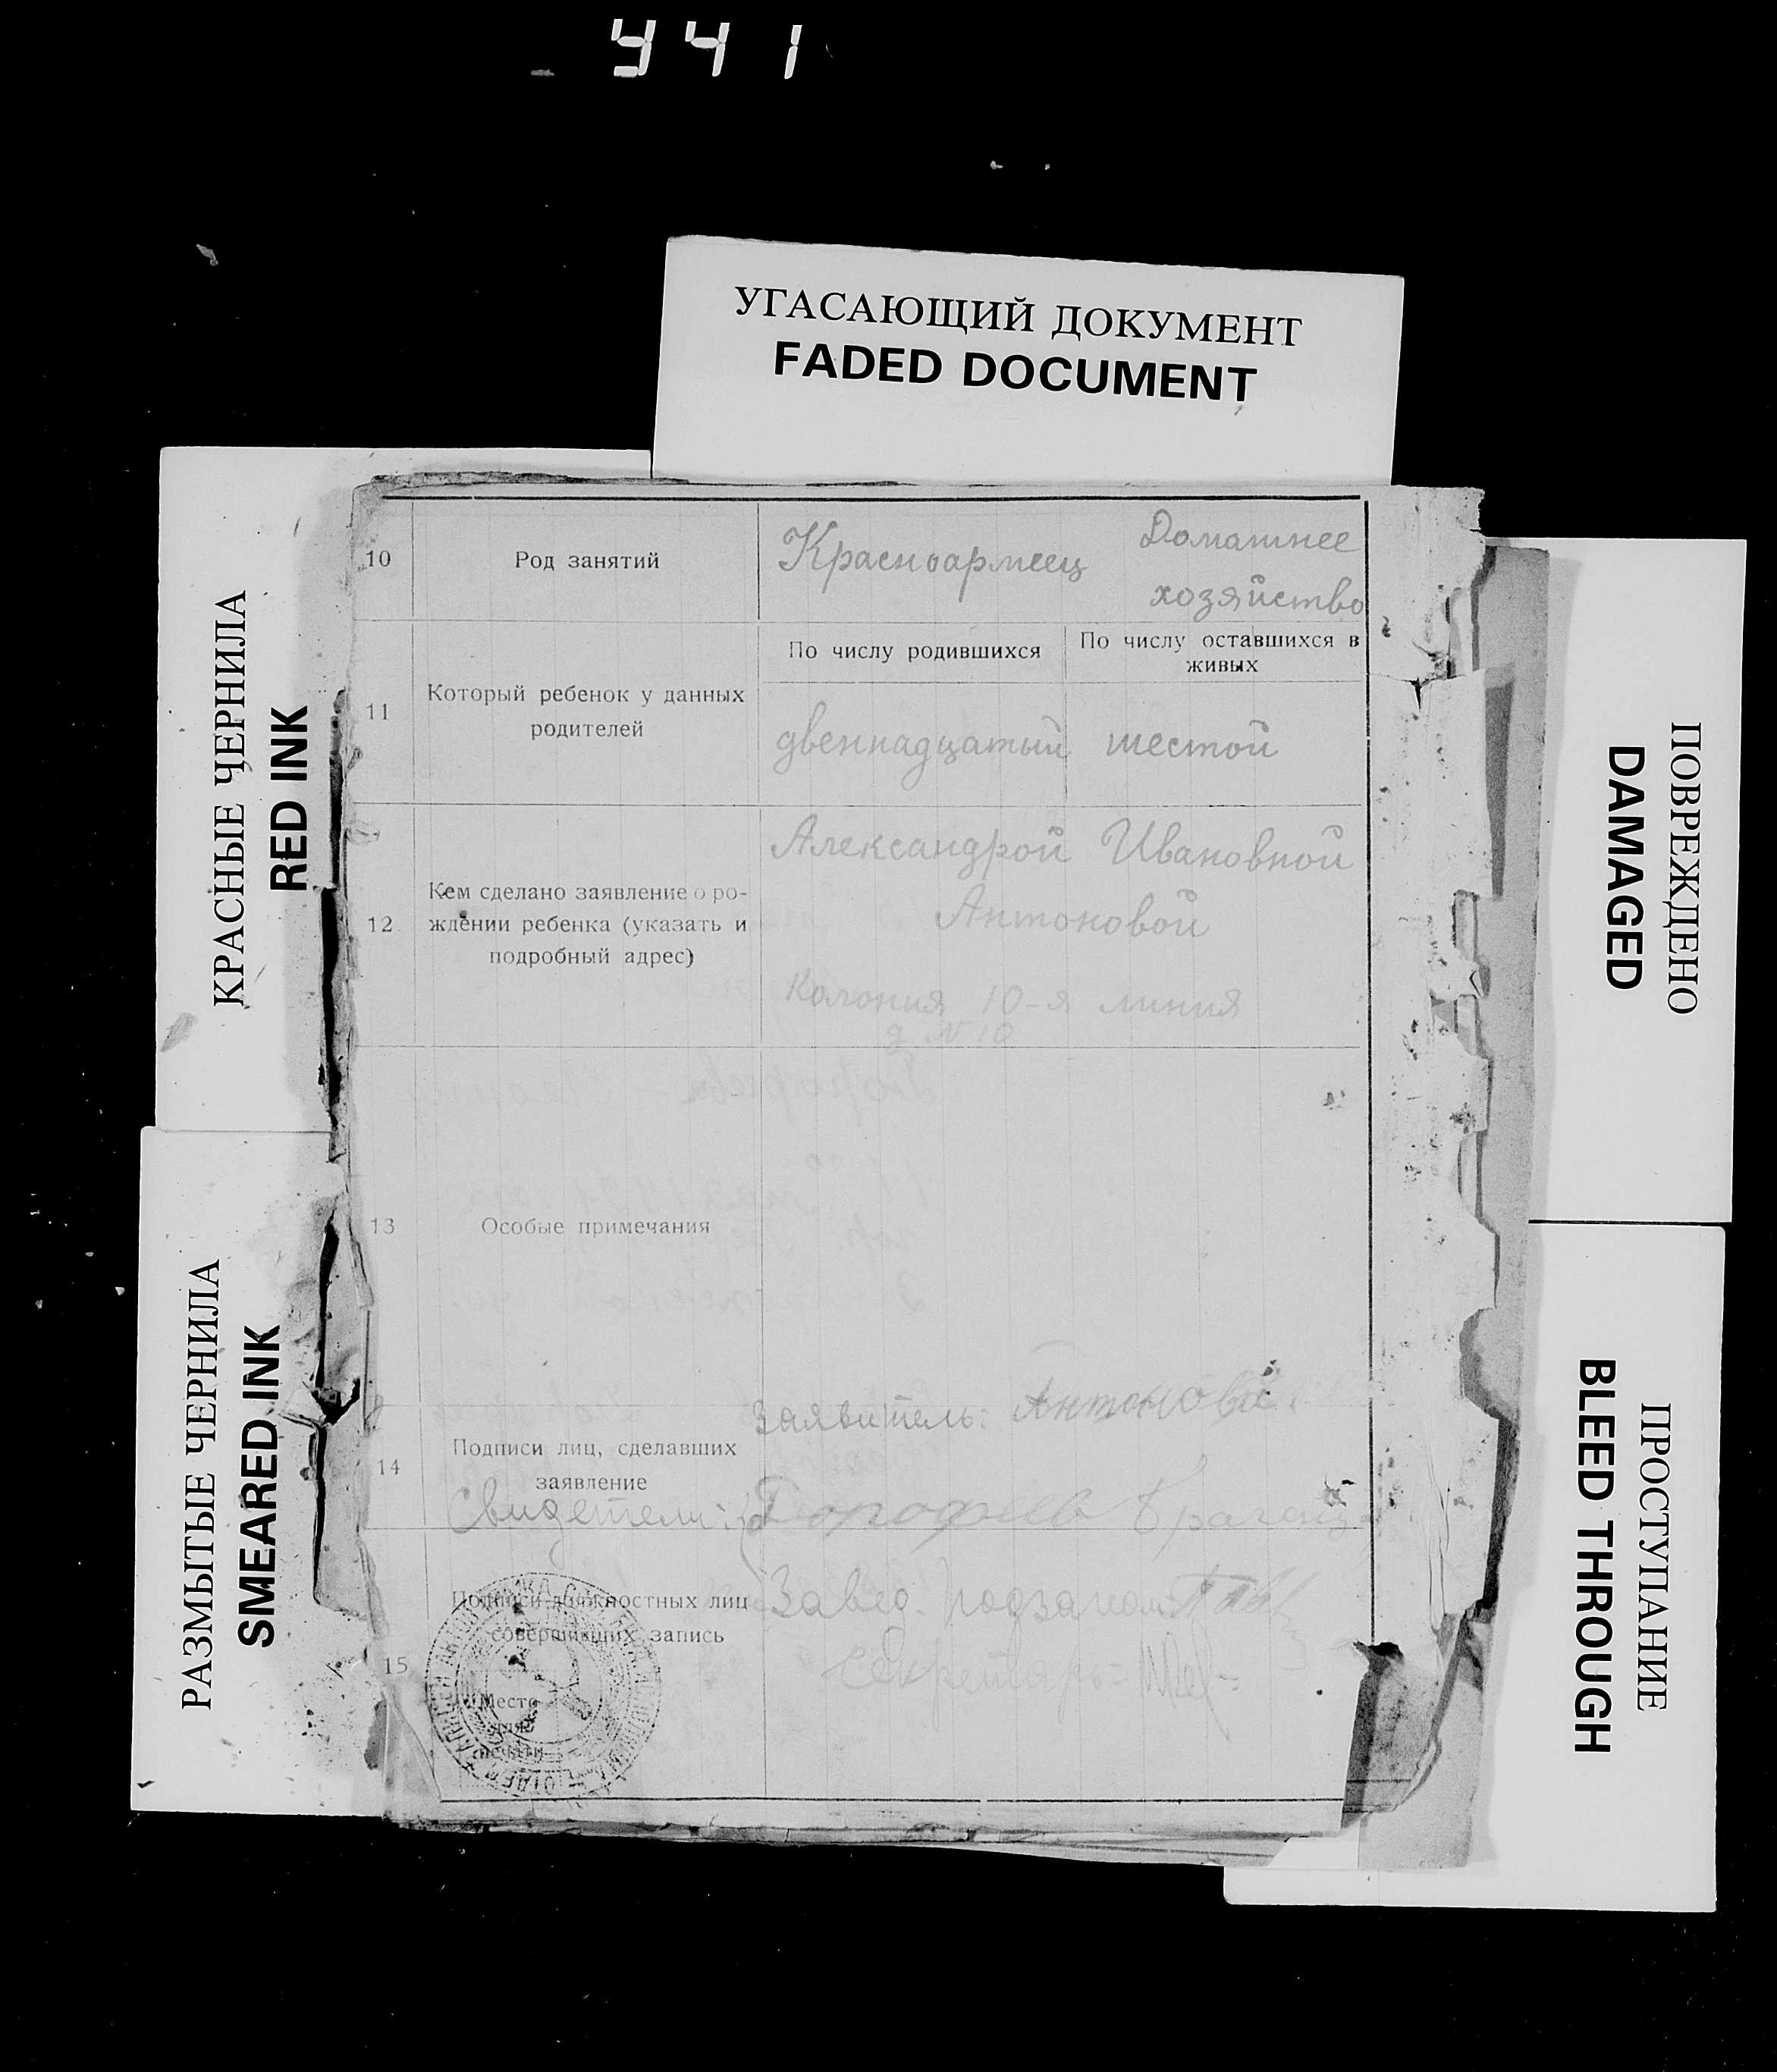 941
УГАСАЮЩИЙ ДОКУМЕНТ
FADED DOCUMENT
КРАСНЫЕ ЧЕРНИЛА
RED INK
РАЗМЫТЫЕ ЧЕРНИЛА
SMEARED INK
10 Род занятий Красноармеец Домашнее
хозяйство
По числу родившихся По числу оставшихся в
живых
11 Который ребенок у данных
родителей
двеннадцатый шестой
12 Кем сделано заявление о ро-
ждении ребенка (указать и
подробный адрес)
Александрой Ивановной
Антоновой
Колония 10-я линия
д № 10
13 Особые примечания
Заявитель: Антонова.
14 Подписи лиц, сделавших
заявление
Свидетели:
15 Подписи должностных лиц
совершивших запись
Завед.
Секретарь
Место
для
печати
ПОВРЕЖДЕНО
DAMAGED
ПРОСТУПАНИЕ
BLEED THROUGH